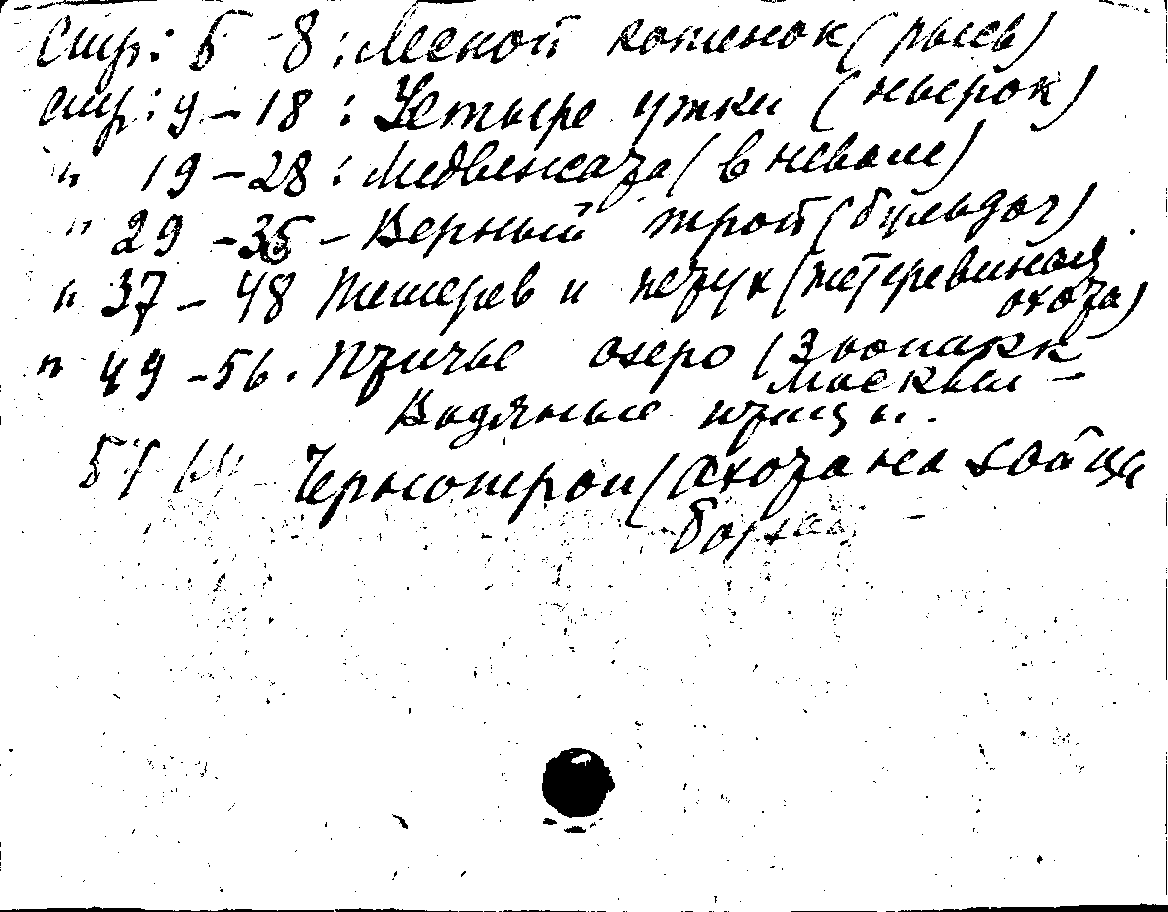 Стр: 5 - 8 : Лесной котенок (рысь)
стр: 9 - 18 : Четыре утки (нырок)
" 19 - 28 : Медвежата (в неволе)
" 29 - 36 - Верный трой (бульдог)
" 37 - 48 Тетерев и петух (тетеревиная
охота)
" 49 - 56. Птичье озеро (Зоопарк
Москвы -
Водяные птицы.
57 Чернотроп (Охота на зайца